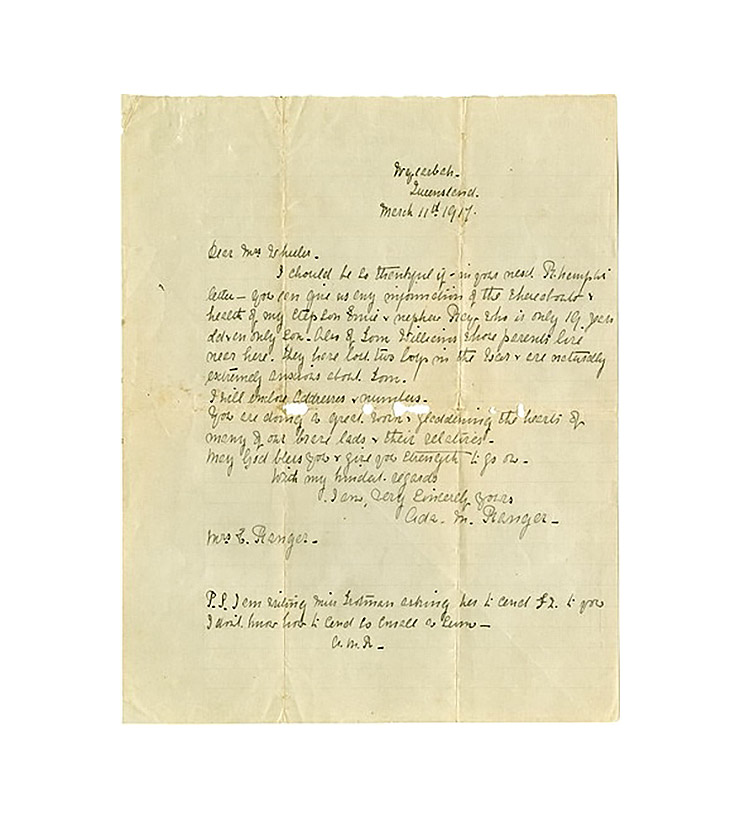 Wycarbah.
Queensland.
March 11th 1917.
Dear Mrs Wheeler.
I should be so thankful if - in your next R.hampton
letter - you can give us any information of the whereabouts &
health of my step son Ernie & nephew Roy who is only 19 years
old & an only son. Also of Tom Williams whose parents live
near here. They have lost two boys in the War & are naturally
extremely anxious about Tom.
I will enclose addresses & numbers -
You are doing a great work & gladdening the hearts of
many of our brave lads & their relatives -
May God bless you & give you strength to go on -
With my kindest regards
I am, Very Sincerely yours
Ada. M. Ranger -
Mrs E. Ranger -
P.S. I am writing Miss Trotman asking her to send £2. to you
I don't know how to send so small a sum -
A.M.R -